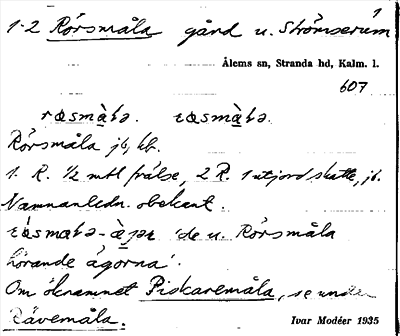 1
1-2 Rörsmåla gård u. Strömserum
Ålems sn, Stranda hd, Kalm. l.
607
Rörsmåla jb, kb.
1. R. 1/2 mtl frälse, 2 R. 1 utjord skatte, jb.
Namnanledn. obekant.
'de u. Rörsmåla
hörande ägorna'.
Om öknamnet Piskaremåla, se under
Rävemåla.
Ivar Modéer 1935